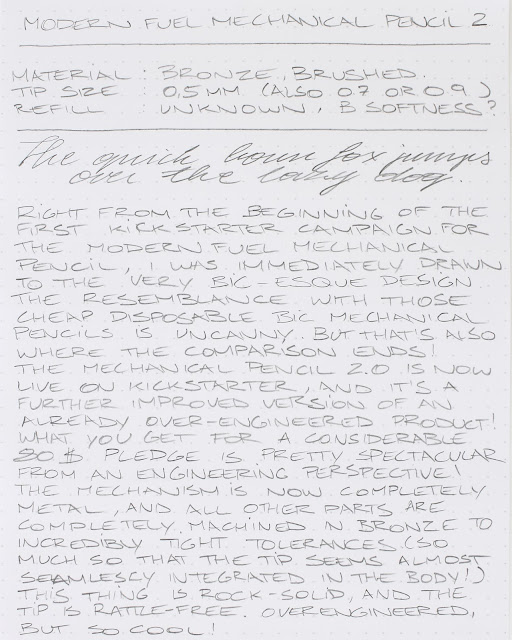 MODERN FUEL MECHANICAL PENCIL 2
MATERIAL : BRONZE, BRUSHED.
TIP SIZE : 0.5 MM (ALSO 0.7 OR 0.9)
REFILL : UNKNOWN, B SOFTNESS?
The quick brown fox jumps
over the lazy dog.
RIGHT FROM THE BEGINNING OF THE
FIRST KICKSTARTER CAMPAIGN FOR
THE MODERN FUEL MECHANICAL
PENCIL, I WAS IMMEDIATELY DRAWN
TO THE VERY BIC-ESQUE DESIGN
THE RESEMBLANCE WITH THOSE
CHEAP DISPOSABLE BIC MECHANICAL
PENCILS IS UNCANNY. BUT THAT'S ALSO
WHERE THE COMPARISON ENDS!
THE MECHANICAL PENCIL 2.0 IS NOW
LIVE ON KICKSTARTER, AND IT'S A
FURTHER IMPROVED VERSION OF AN
ALREADY OVER-ENGINEERED PRODUCT!
WHAT YOU GET FOR A CONSIDERABLE
$ PLEDGE IS PRETTY SPECTACULAR
FROM AN ENGINEERING PERSPECTIVE!
THE MECHANISM IS NOW COMPLETELY
METAL, AND ALL OTHER PARTS ARE
COMPLETELY MACHINED IN BRONZE TO
INCREDIBLY TIGHT TOLERANCES. (SO
MUCH SO THAT THE TIP SEEMS ALMOST
SEAMLESCY INTEGRATED IN THE BODY!)
THIS THING IS ROCK-SOLID, AND THE
TIP IS RATTLE-FREE. OVERENGINEERED,
BUT SO COOL!